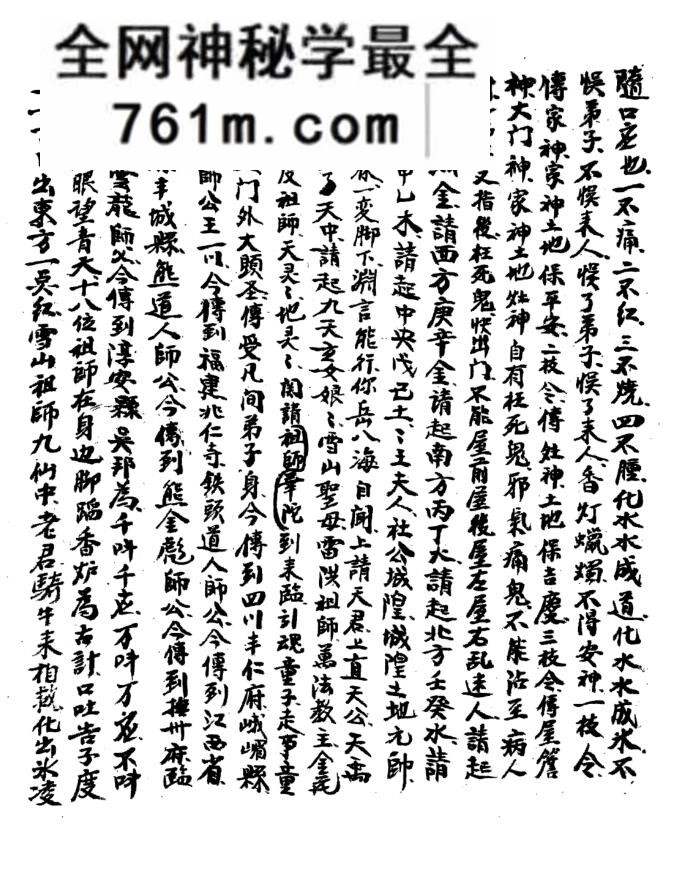 全网神秘学最全
761m.com
随口应也一不痛二不红三不烧四不肿化水水成道化水水成氷不
悮弟子不悮来人悮了弟子悮了来人香灯蠟燭不得安神一枝令
傳家神家神土地保平安二枝令傳灶神土地保吉慶三枝令傳屋簷
神大门神家神土地灶神自有枉死鬼邪氣痛鬼不能沾至病人
又指後枉死鬼快出门不能屋前屋後屋左屋右乱迷人請起
金請西方庚辛金請起南方丙丁火請起北方壬癸水請
甲乙木請起中央戊己土土王夫人社公城隍城隍土地元帥
一变脚下渊言能行你岳八海自闻上請天君上直天公天禹
了天中請起九天玄女娘娘雪山聖母雷洪祖師萬法教主金花
度祖師天灵灵地灵灵闻請祖師華陀到来臨引魂童子走事童
门外大頭圣傳受凡间弟子身今傳到四川丰仁府峨嵋縣
師公王一川今傳到福建兆仁寺鉄頭道人師公今傳到江西省
丰城縣熊道人師公今傳到熊金彪師公今傳到撫州麻臨
雲龍師父今傳到淳安縣吳邦為千叫千应万叫万应不叫
眼望青天十八位祖師在身边脚踏香炉為古計口吐告子度
出東方一点红雪山祖師九仙中老君騎牛来相救化出氷凌